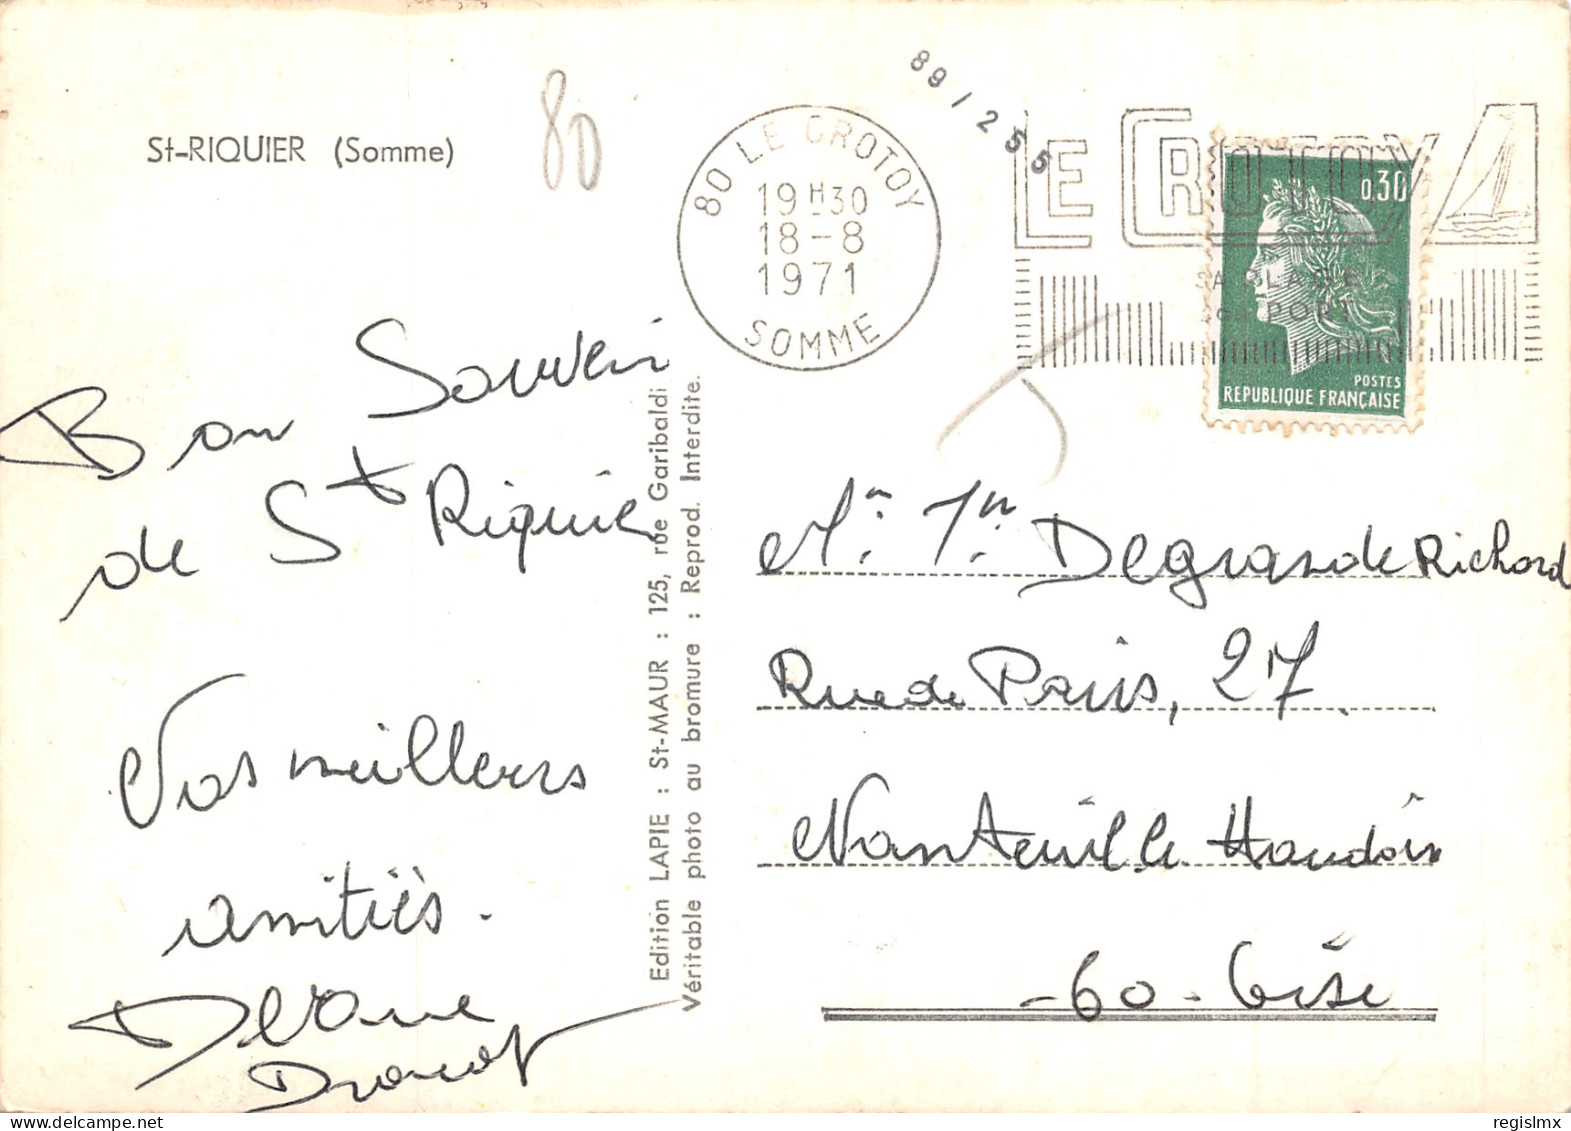 St-RIQUIER (Somme)
80
89/255
80 LE CROTOY
19H30
18-8
1971
SOMME
LE CROTOY
SA PLAGE
SON PORT
0,30
POSTES
REPUBLIQUE FRANÇAISE
Bon Souvenir
de St Riquier
Vos meilleurs
amitiés.
Edition LAPIE : St-MAUR : 125, rue Garibaldi
Véritable photo au bromure : Reprod. Interdite.
Degrande Richard
Rue de Paris, 27.
Nanteuil le Haudoin
-60- Oise
regislmx